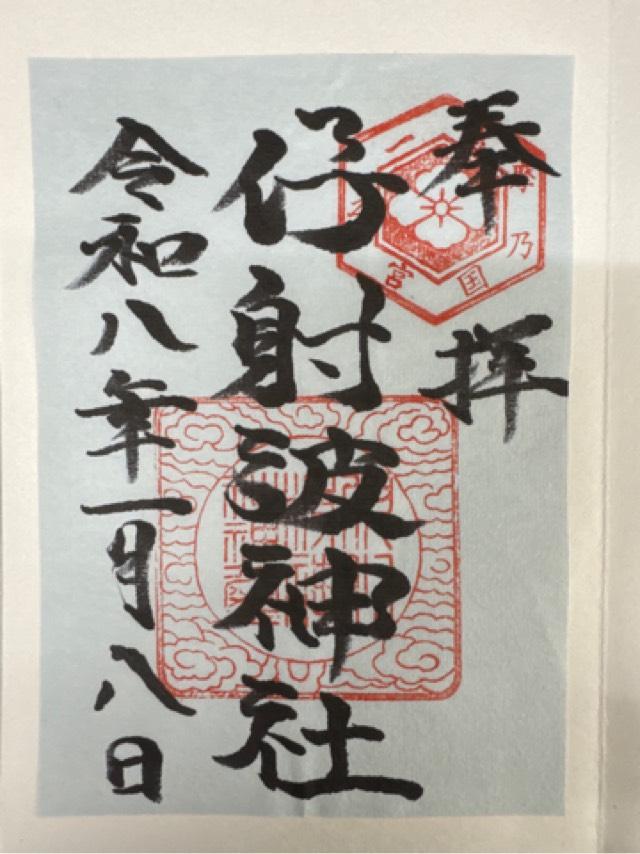 奉拝
仔射波神社
令和八年一月八日
乃国
宮
二